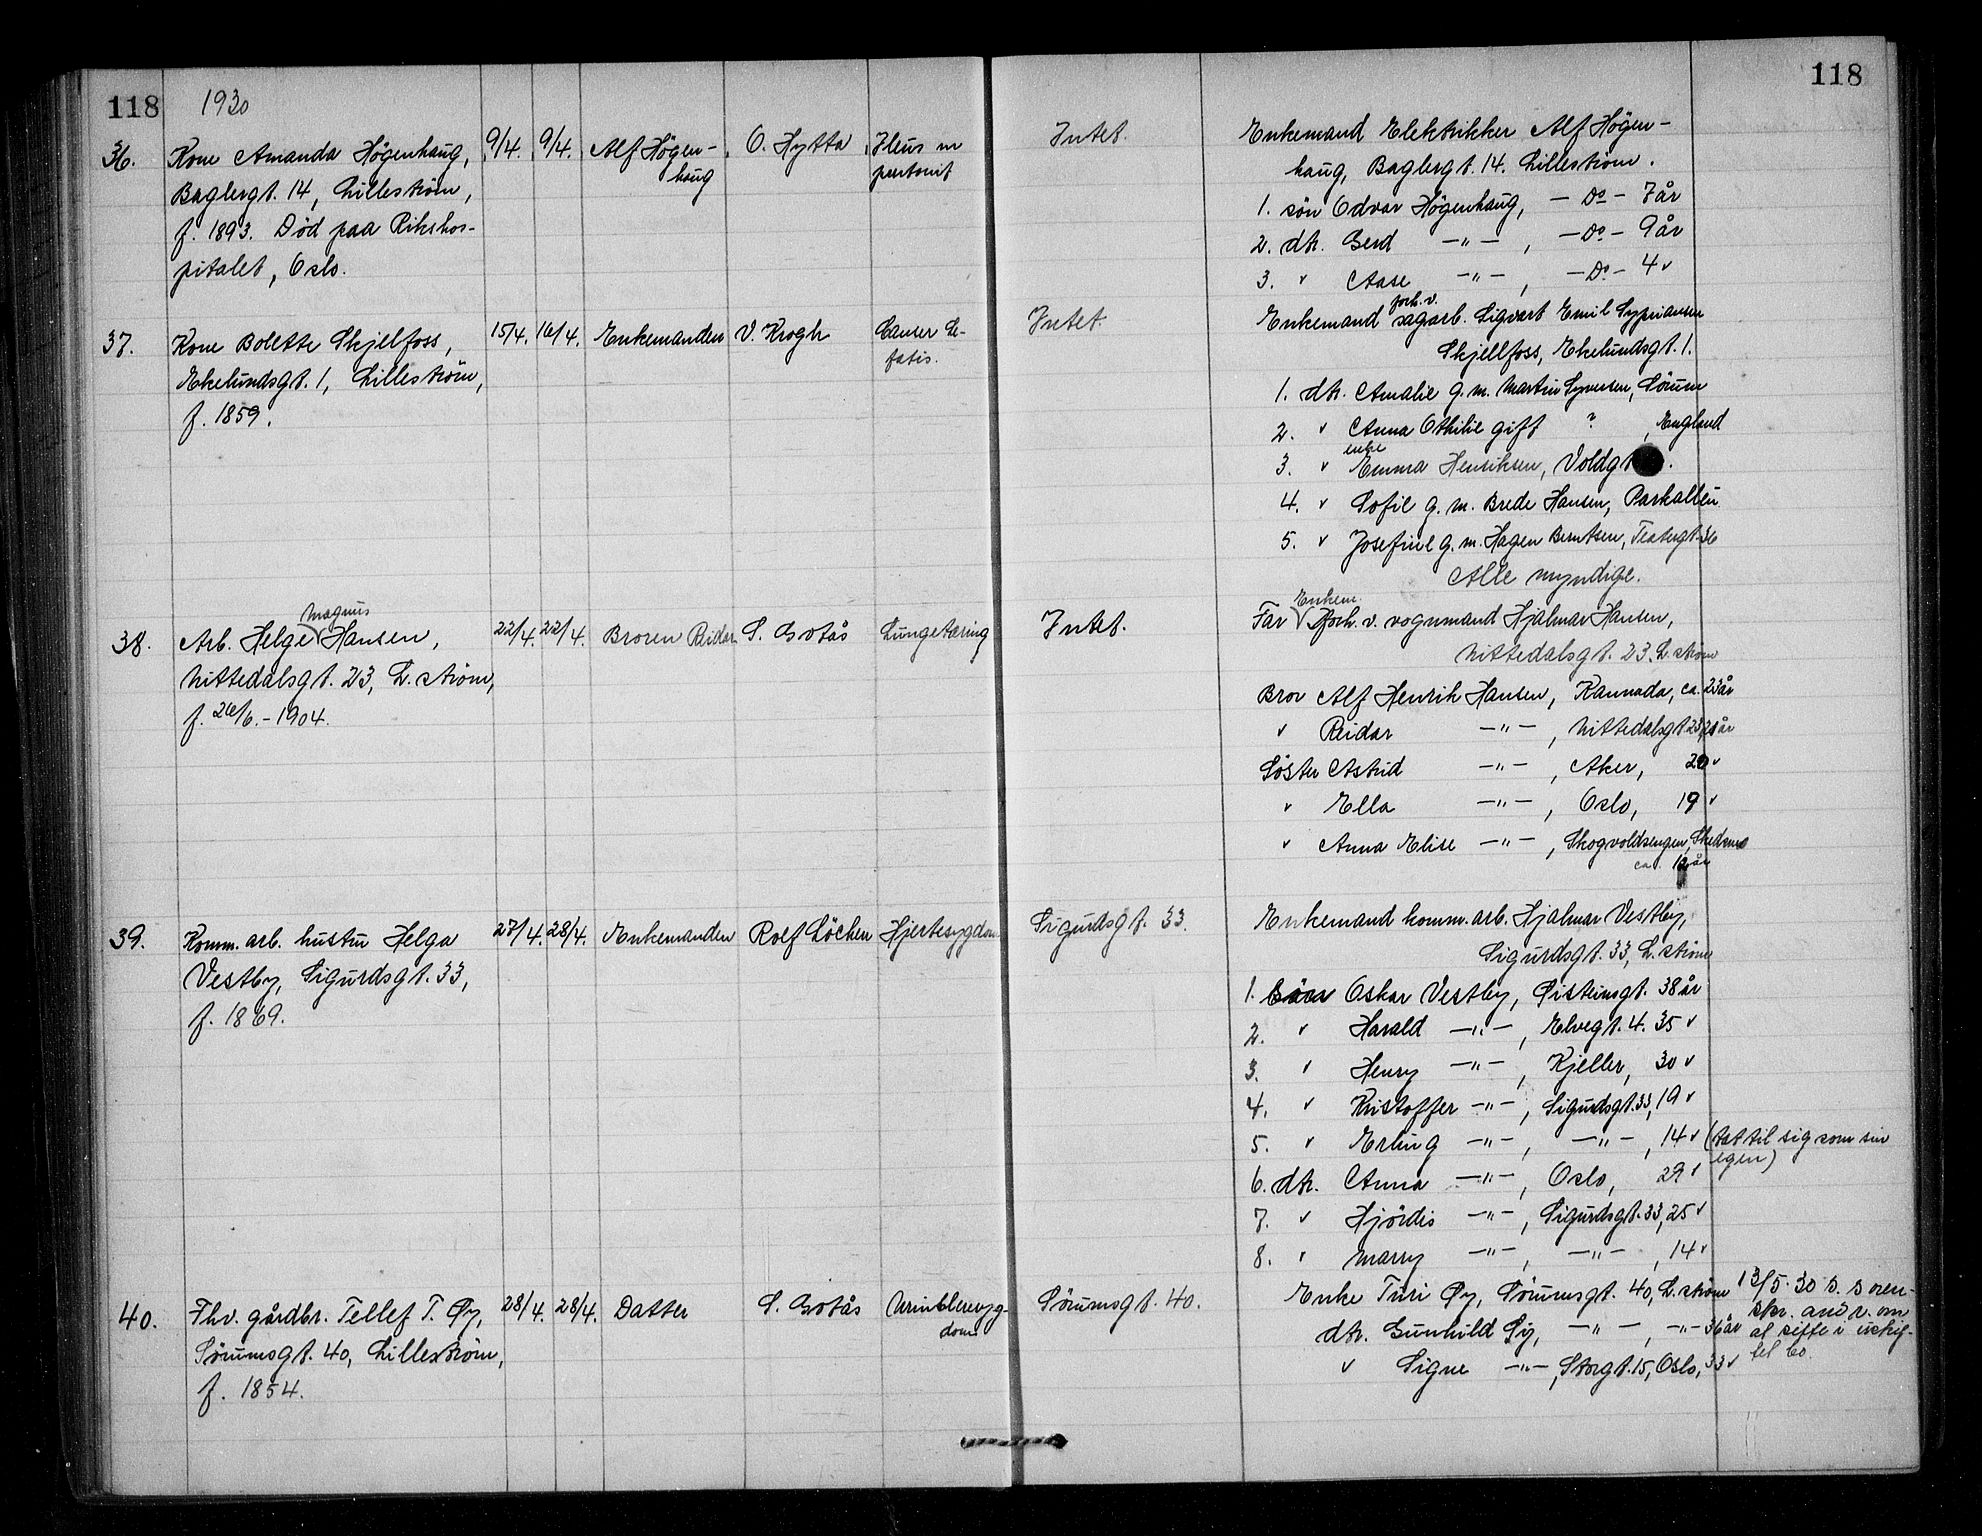 118 1930 118
36. Kone Amanda Högenhaug, 9/4. 9/4. Alf Högen- O. Hytta Ileus m Intet. Enkemand Elektrikker Alf Högen-
Baglergt. 14, Lilleström, haug peritonit haug, Baglergt. 14. Lilleström.
f. 1893. Död paa Rikshos- 1. sön Odvar Högenhaug, — Do — 7 år
pitalet, Oslo. 2. dtr. Gerd —"— , — Do — 9 år
3. " Aase —"— , — Do — 4 "
37. Kone Bolette Skjelfoss, 15/4. 16/4. Enkemanden V. Krogh Cancer Intet. Enkemand forh. v. sagarb. Sigvart Emil Sypriansen
Ekelundsgt. 1, Lilleström, Skjellfoss, Ekelundsgt. 1.
f. 1859. 1. dtr. Amalie g. m. Martin Syversen, Sörum
2. " Anna Othilie gift ? , England
3. " enke Emma Henriksen, Voldgt .
4. " Sofie g. m. Brede Hansen, Parkalleen
5. " Josefine g. m. Hagen Berntsen, Teatergt. 36
Alle myndige.
38. Arb. Helge Magnus Hansen, 22/4. 22/4. Broren Reidar S. Gotås Lungetæring Intet. Far Enkem. forh. v. vognmand Hjalmar Hansen,
Nittedalsgt. 23, L. ström, Nittedalsgt. 23. L. ström
f. 26/6. - 1904. Bror Alf Henrik Hansen, Kannada, ca. 23 år
" Reidar —"— , Nittedalsgt 23, 21 år
Söster Astrid —"— , Aker, 20 "
" Ella —"— , Oslo, 19 "
" Anna Elise —"— , Skogvoldsengen, Skedsmo
ca. 12 år
39. Komm. arb. hustru Helga 27/4. 28/4. Enkemanden Rolf Löchen Hjertesygdom Sigurdsgt. 33. Enkemand komm. arb. Hjalmar Vestby,
Vestby, Sigurdsgt. 33, Sigurdsgt. 33, L. ström
f. 1869. 1. Sön Oskar Vestby, Öisteinsgt. 38 år
2. " Harald —"— , Elvegt. 4. 35 "
3. " Henry —"— , Kjeller, 30 "
4. " Kristoffer —"— , Sigurdsgt. 33, 19 "
5. " Erling —"— , —"— , 14 " (tat til sig som sin
egen)
6. dtr. Anna —"— , Oslo, 29 "
7. " Hjördis —"— , Sigurdsgt. 33, 25 "
8. " Marry —"— , —"— , 14 "
40. Fhv. gårdbr. Tellef T. Öy, 28/4. 28/4. Datter S. Gotås Urinblæresyg- Sörumsgt. 40. Enke Turi Öy, Sörumsgt. 40, L. ström 13/5. 30
Sörumsgt. 40, Lilleström, dom dtr. Gunhild Öy, —"— , —"— 36 år at sitte i uskif-
f. 1854. " Signe —"— , Storgt. 15, Oslo, 33 " tet bo.